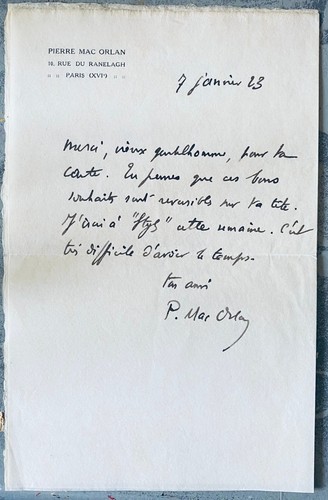 PIERRE MAC ORLAN
10, RUE DU RANELAGH
" " PARIS (XVIe) " "
7 janvier 23
Merci, vieux gentilhomme, pour ta
carte. Tu penses que ces bons
souhaits sont réversibles sur ta tête.
J'irai à "Styl" cette semaine. C'est
très difficile d'avoir le temps.
ton ami
P. Mac Orlan